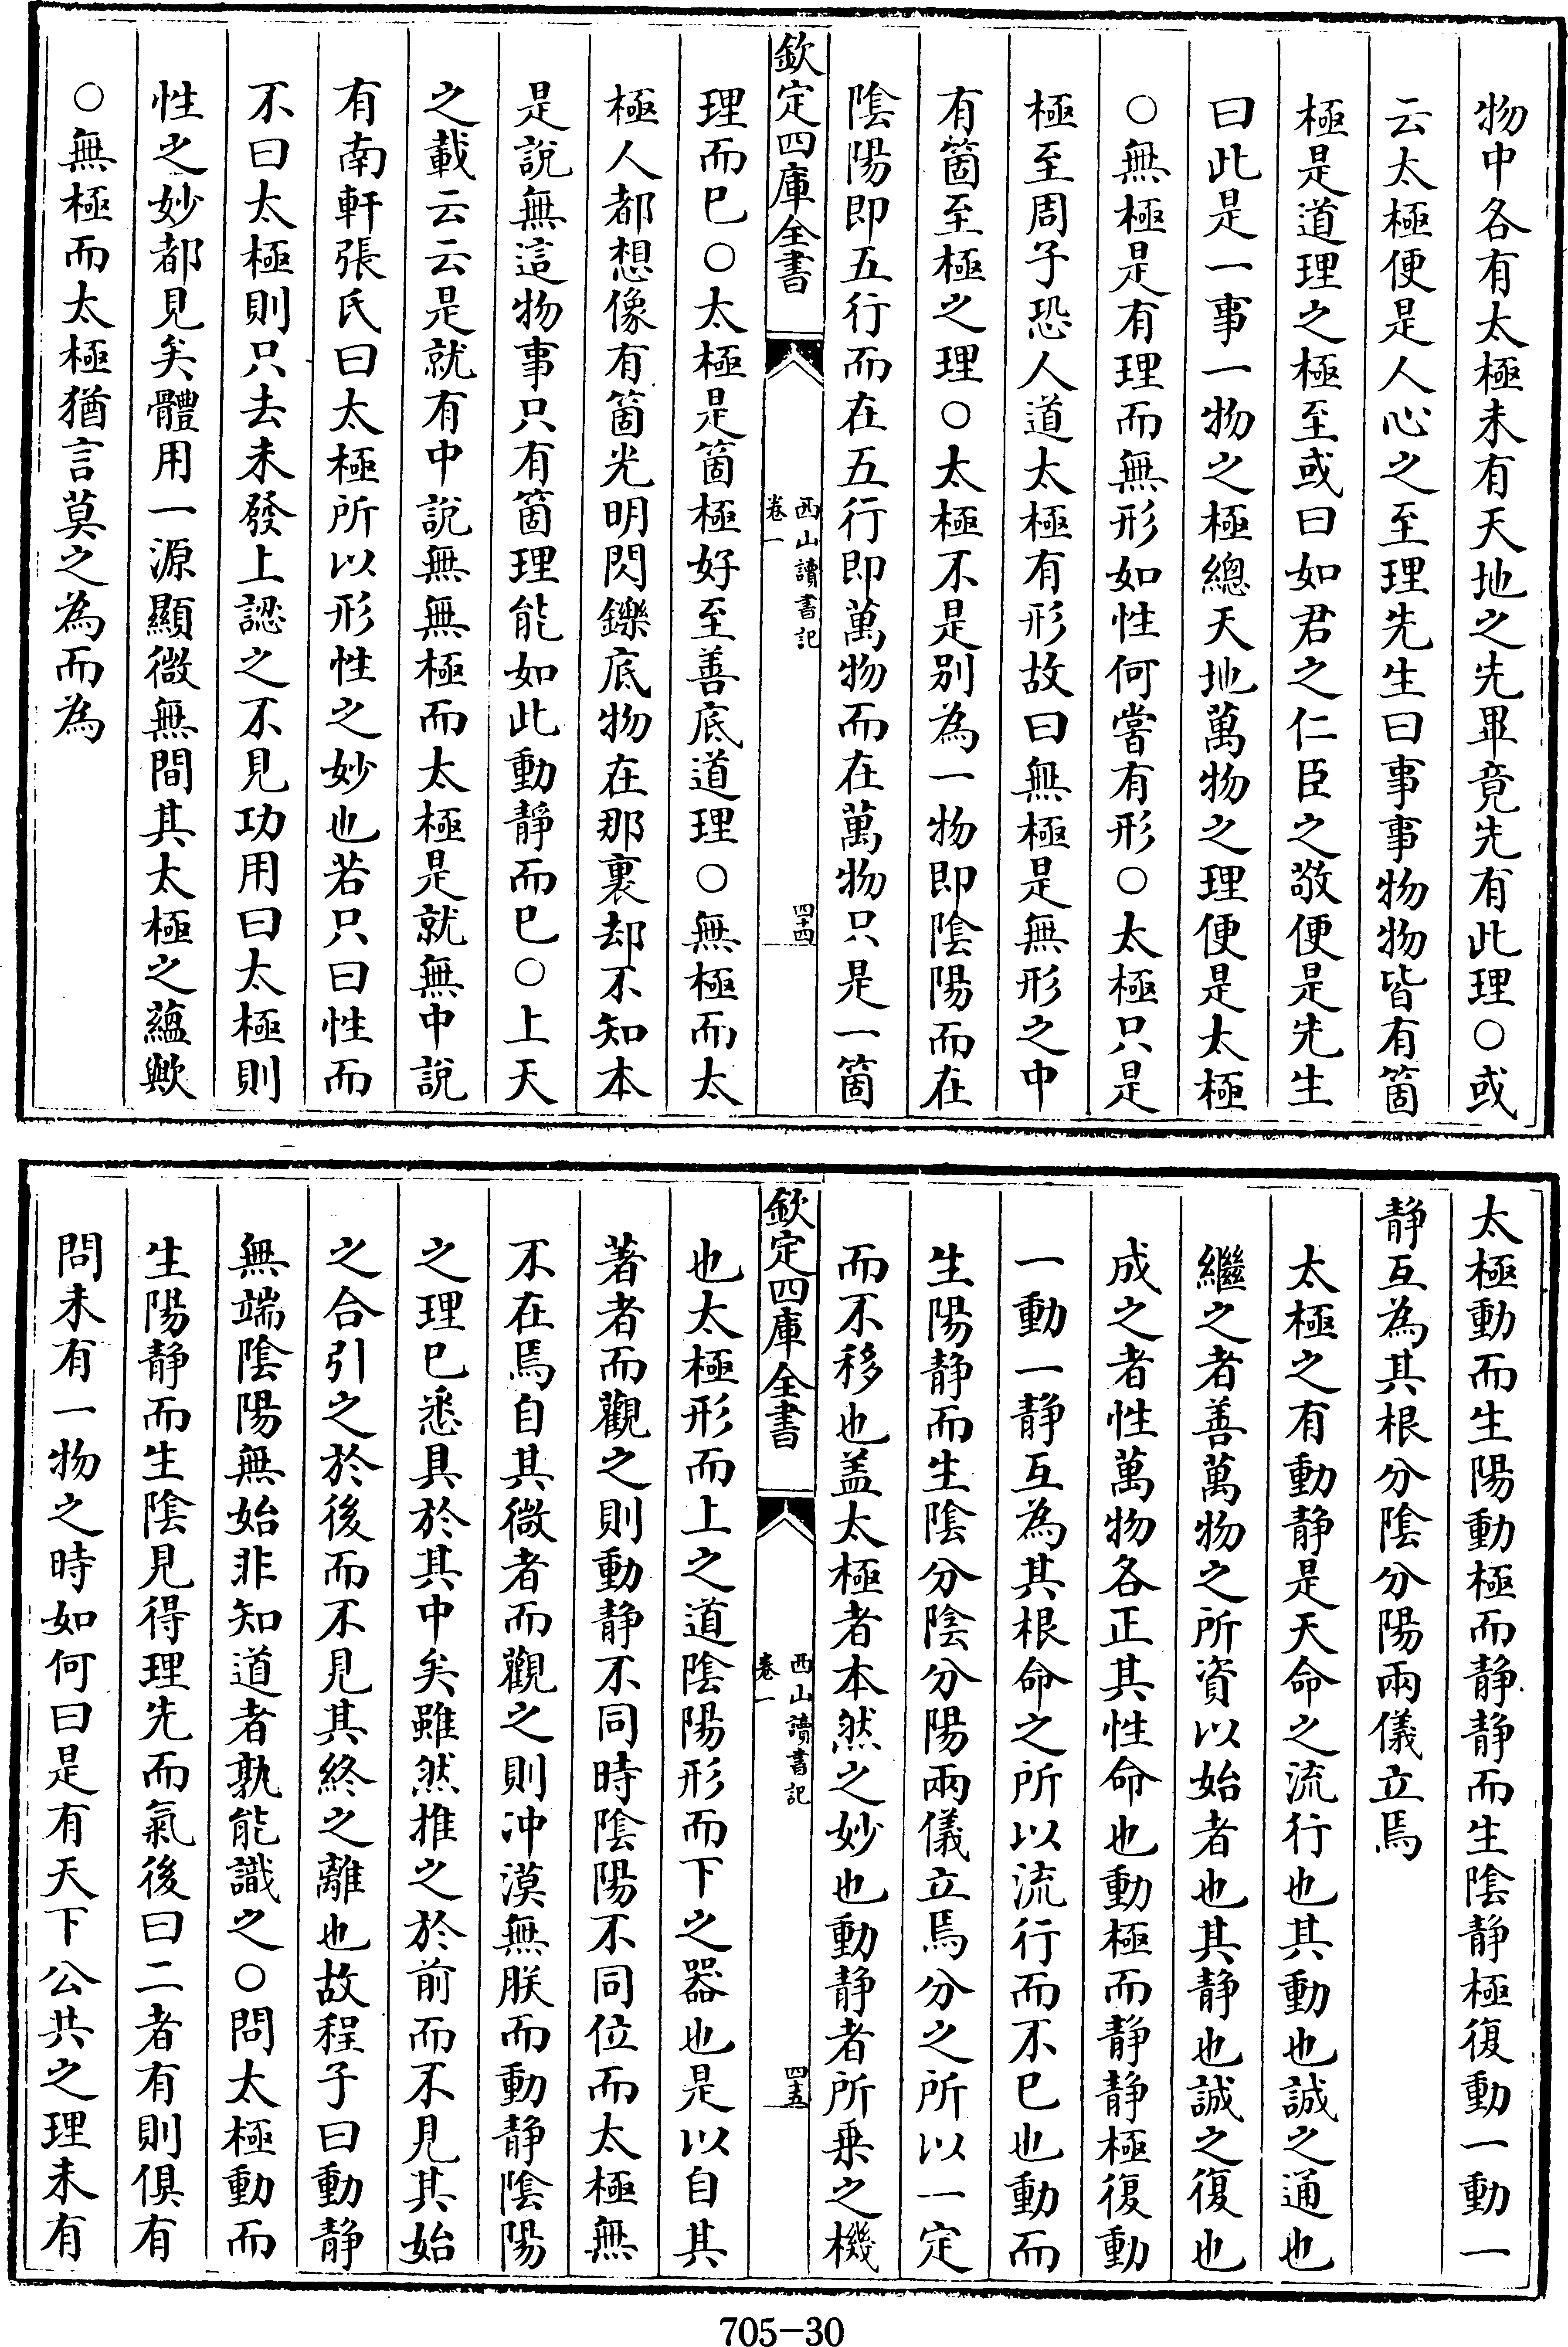 物中各有太極未有天地之先畢竟先有此理○或
云太極便是人心之至理先生曰事事物物皆有箇
極是道理之極至或曰如君之仁臣之敬便是先生
曰此是一事一物之極總天地萬物之理便是太極
○無極是有理而無形如性何嘗有形○太極只是
極至周子恐人道太極有形故曰無極是無形之中
有箇至極之理○太極不是别為一物即陰陽而在
陰陽即五行而在五行即萬物而在萬物只是一箇
欽定四庫全書
西山讀書記
卷一
四十四
理而已○太極是箇極好至善底道理○無極而太
極人都想像有箇光明閃鑠底物在那裏却不知本
是説無這物事只有箇理能如此動靜而已○上天
之載云云是就有中説無無極而太極是就無中説
有南軒張氏曰太極所以形性之妙也若只曰性而
不曰太極則只去未發上認之不見功用曰太極則
性之妙都見矣體用一源顯微無間其太極之蘊歟
○無極而太極猶言莫之為而為
太極動而生陽動極而静静而生陰静極復動一動一
静互為其根分陰分陽兩儀立焉
太極之有動静是天命之流行也其動也誠之通也
繼之者善萬物之所資以始者也其静也誠之復也
成之者性萬物各正其性命也動極而静静極復動
一動一静互為其根命之所以流行而不已也動而
生陽静而生陰分陰分陽兩儀立焉分之所以一定
而不移也盖太極者本然之妙也動静者所乗之機
欽定四庫全書
西山讀書記
卷一
四十五
也太極形而上之道陰陽形而下之器也是以自其
著者而觀之則動静不同時陰陽不同位而太極無
不在焉自其微者而觀之則冲漠無朕而動静陰陽
之理已悉具於其中矣雖然推之於前而不見其始
之合引之於後而不見其終之離也故程子曰動静
無端陰陽無始非知道者孰能識之○問太極動而
生陽静而生陰見得理先而氣後曰二者有則俱有
問未有一物之時如何曰是有天下公共之理未有
705-30